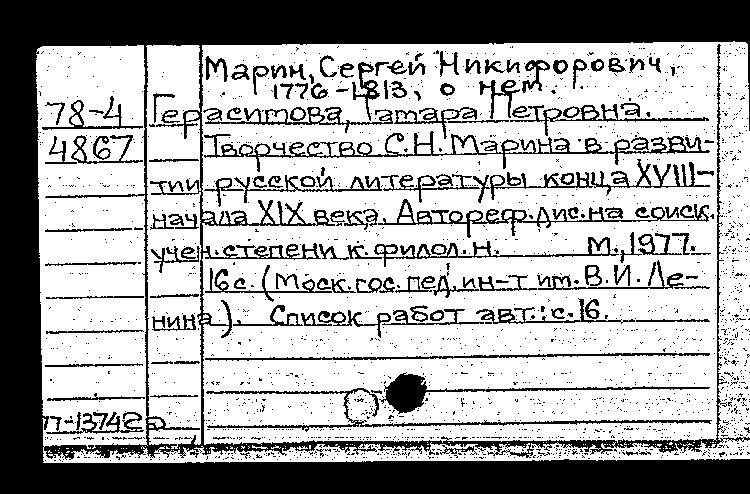 Марин, Сергей Никифорович,
1776-1813, о нем.
78-4 Герасимова, Тамара Петровна.
4867 Творчество С.Н. Марина в разви-
тии русской литературы конца XVIII-
начала XIX века. Автореф.дис.на соиск.
учен.степени к.филол.н. М.,1977.
16с. (Моск.гос.пед.ин-т им.В.И.Ле-
нина). Список работ авт.: с.16.
77-13742